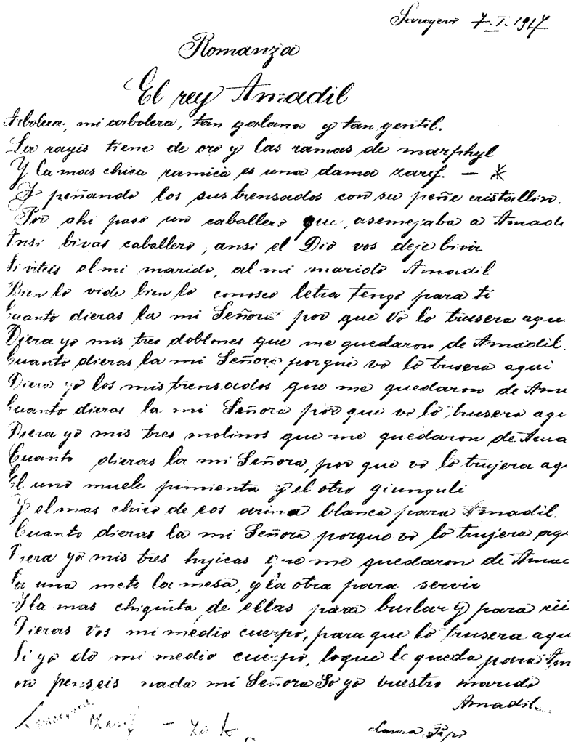 7.I.1917
Romanza
El rey Amadil
Arbolera, mi arbolera, tan galana y tan gentil.
La rayis tiene de oro y las ramas de marphyl
Y la mas chica ramica es una dama zarif. - *
peñando los sus trensados con su peñe cristallin.
Por ahi paso un caballero que, asemejaba a Amadi
Ansi bivas caballero, ansi el Dio vos deje bivir
Si viteis el mi marido, al mi marido Amadil
Bien lo vide bien lo conosco letra tengo para ti
Cuanto dieras la mi Señora por que vo lo trusera aqui
Diera yo mis tres doblones que me quedaron de Amadil.
Cuanto dieras la mi Señora porque vo lo trusera aqui
Diera yo los mis trensados que me quedaron de Ama
Cuanto dieras la mi Señora por que vo lo trusera aqu
Diera yo mis tres molinos que me quedaron de Ama
Cuanto dieras la mi Señora, por que vo lo trujera aq
El uno muele pimienta y el otro giunguli
Y el mas chico de eos arina blanca para Amadil.
Cuanto dieras la mi Señora porque vo lo trujera aqu
Diera yo mis tres hijicas que me quedaron de Amad
La una mete la mesa, y la otra para servir
Y la mas chiquita de ellas para burlar y para rii
Dieras vos mi medio cuerpo, para que lo trusera aqu
Si yo do mi medio cuerpo, loque le queda para Am
no penseis nada mi Señora So yo vuestro marido
Amadil.
Zarif -
Laura